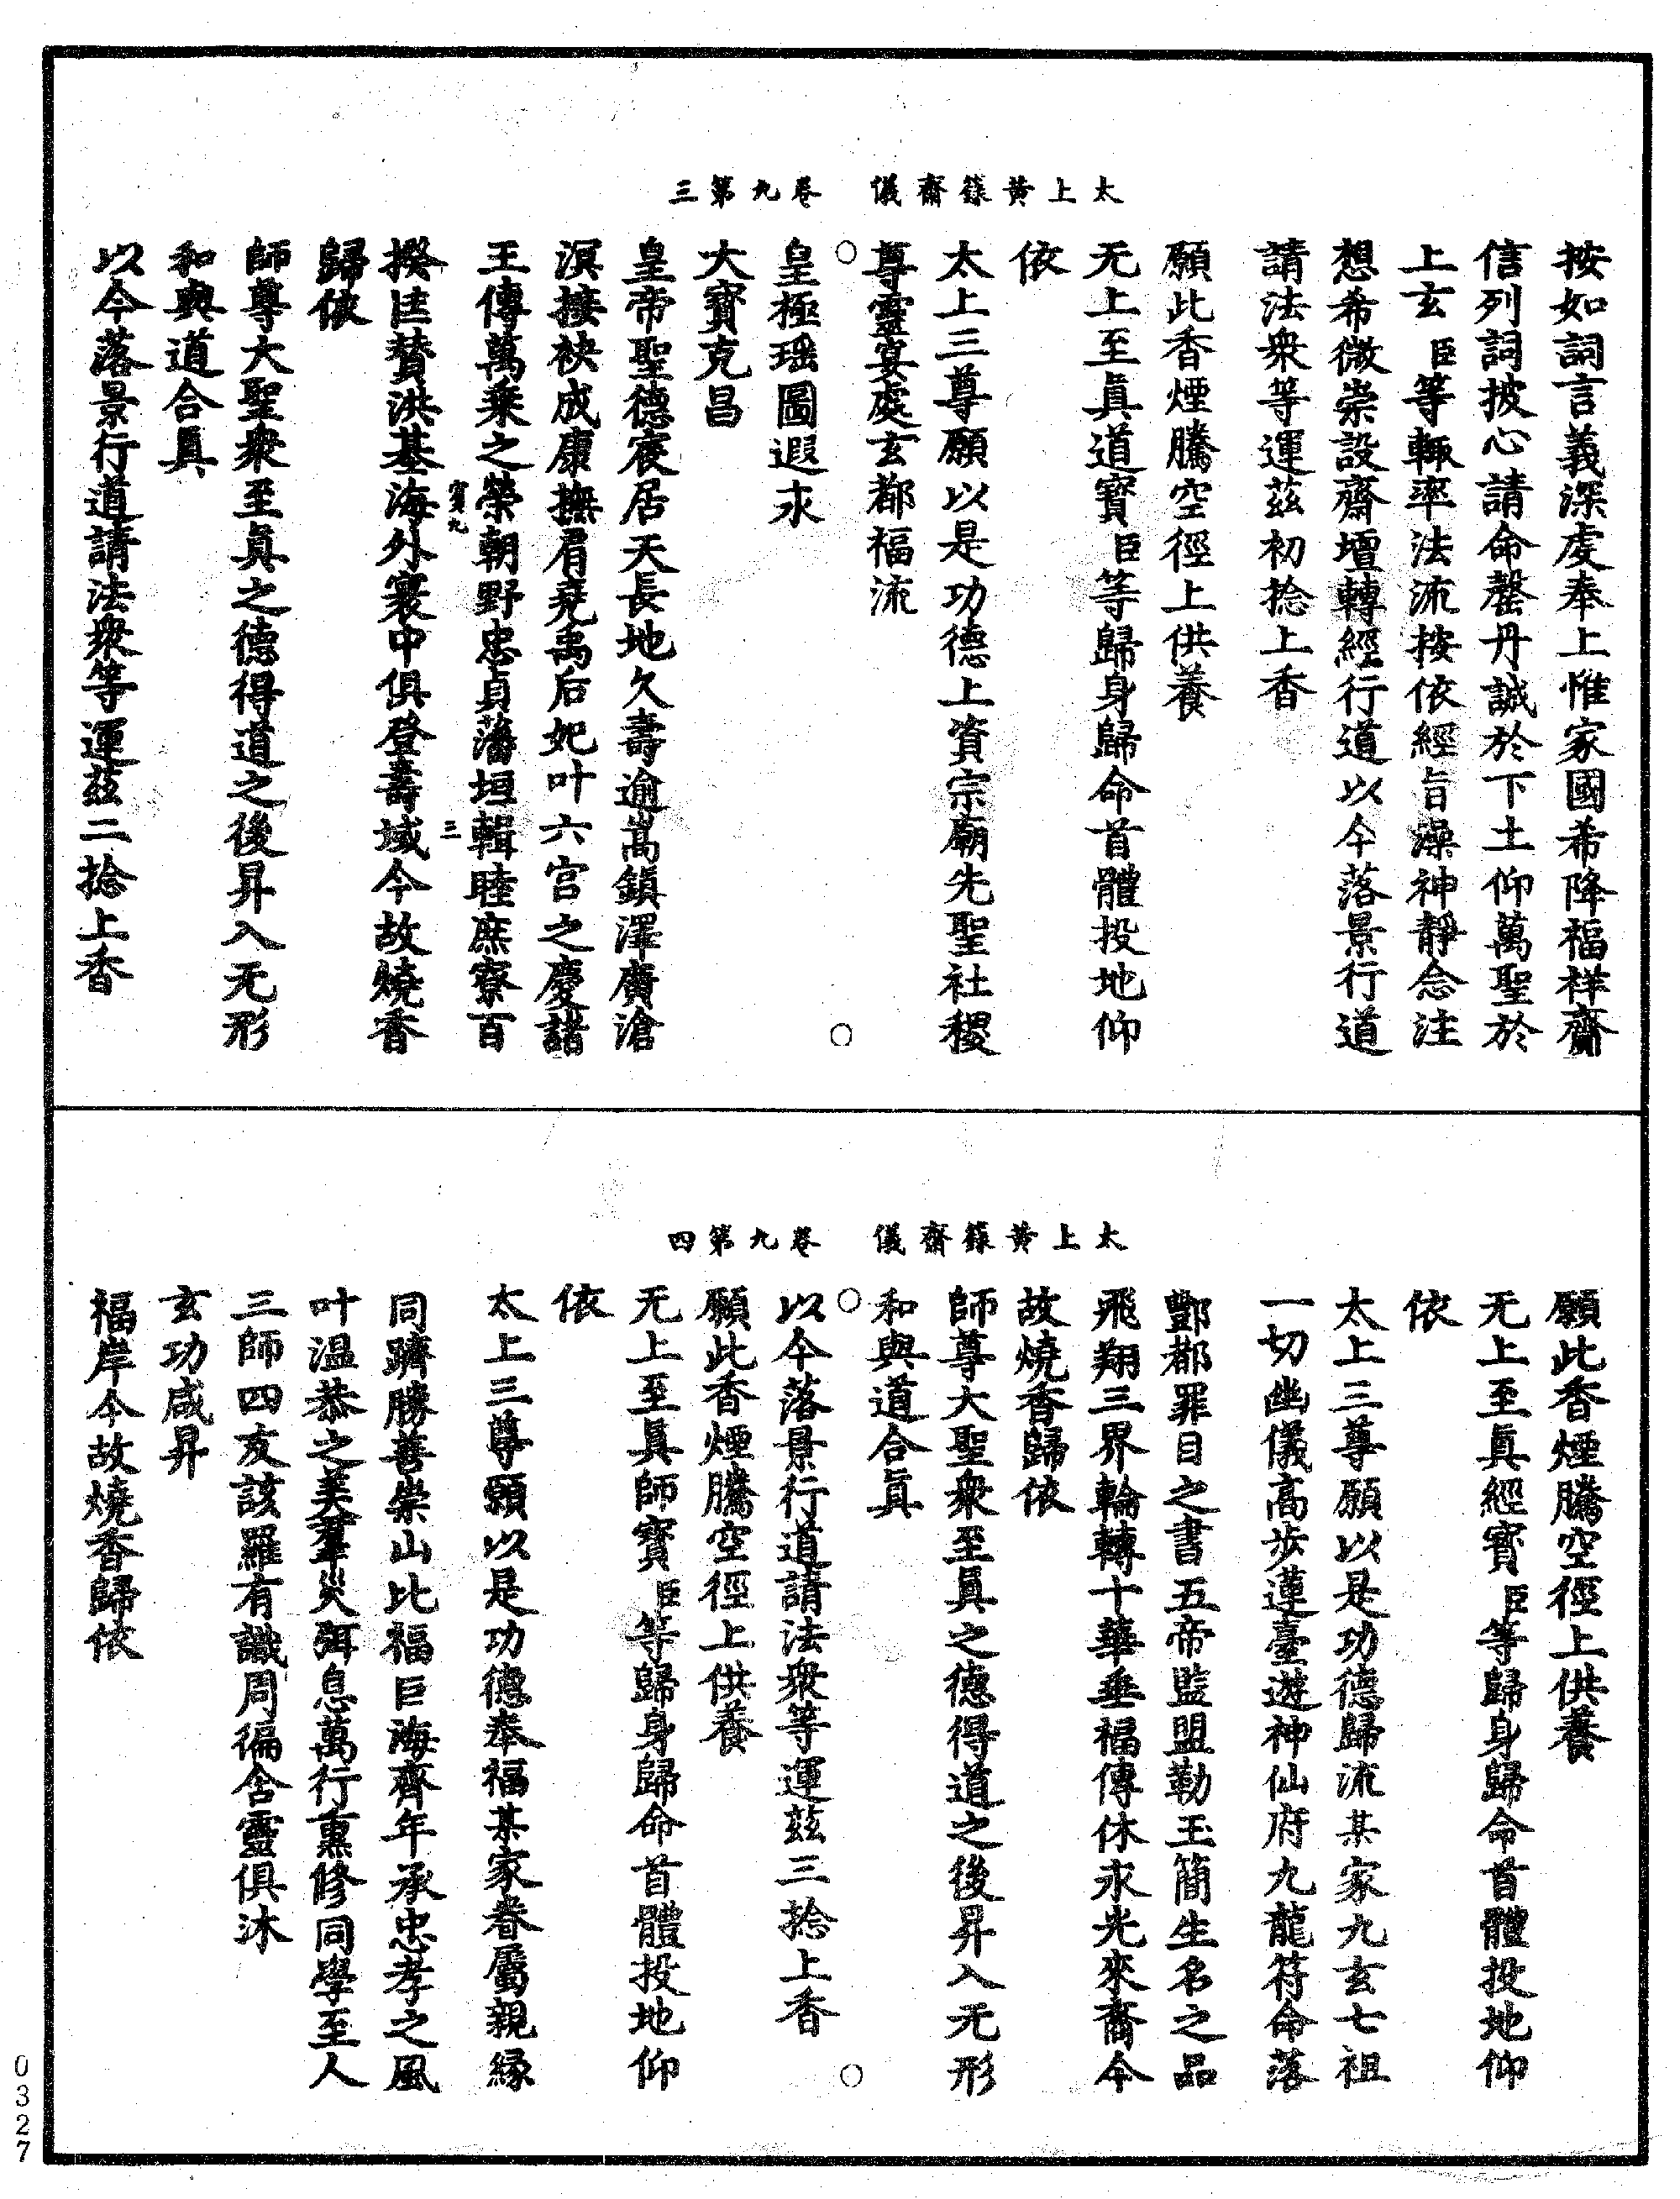 太上黃籙齋儀　卷九第三
按如詞言義深虔奉上惟家國希降福祥齋
信列詞披心請命罄丹誠於下土仰萬聖於
上玄臣等輒率法流按依經旨澡神靜念注
想希微崇設齋壇轉經行道以今落景行道
請法衆等運茲初捻上香
願此香煙騰空徑上供養
无上至眞道寶臣等歸身歸命首體投地仰
依
太上三尊願以是功德上資宗廟先聖社稷
尊靈宴處玄都福流
皇極瑶圖遐永
大寶克昌
皇帝聖德宸居天長地久壽逾嵩鎮澤廣滄
溟接袂成康撫肩堯禹后妃叶六宮之慶諸
王傳萬乘之榮朝野忠貞藩垣輯睦庶寮百
寳九
三
揆匡贊洪基海外寰中俱登壽域今故燒香
歸依
師尊大聖衆至眞之德得道之後昇入无形
和與道合眞
以今落景行道請法衆等運茲二捻上香
太上黃籙齋儀　卷九第四
願此香煙騰空徑上供養
无上至眞經寳臣等歸身歸命首體投地仰
依
太上三尊願以是功德歸流某家九玄七祖
一切幽儀高步蓮臺遊神仙府九龍符命落
酆都罪目之書五帝監盟勒玉簡生名之品
飛翔三界輪轉十華垂福傳休永光來裔今
故燒香歸依
師尊大聖衆至眞之德得道之後昇入无形
和與道合眞
以今落景行道請法衆等運茲三捻上香
願此香煙騰空徑上供養
无上至眞師寳臣等歸身歸命首體投地仰
依
太上三尊願以是功德奉福某家眷屬親緣
同躋勝善崇山比福巨海齊年承忠孝之風
叶温恭之美羣災弭息萬行熏修同學至人
三師四友該羅有識周徧含靈俱沐
玄功咸昇
福岸今故燒香歸依
0327